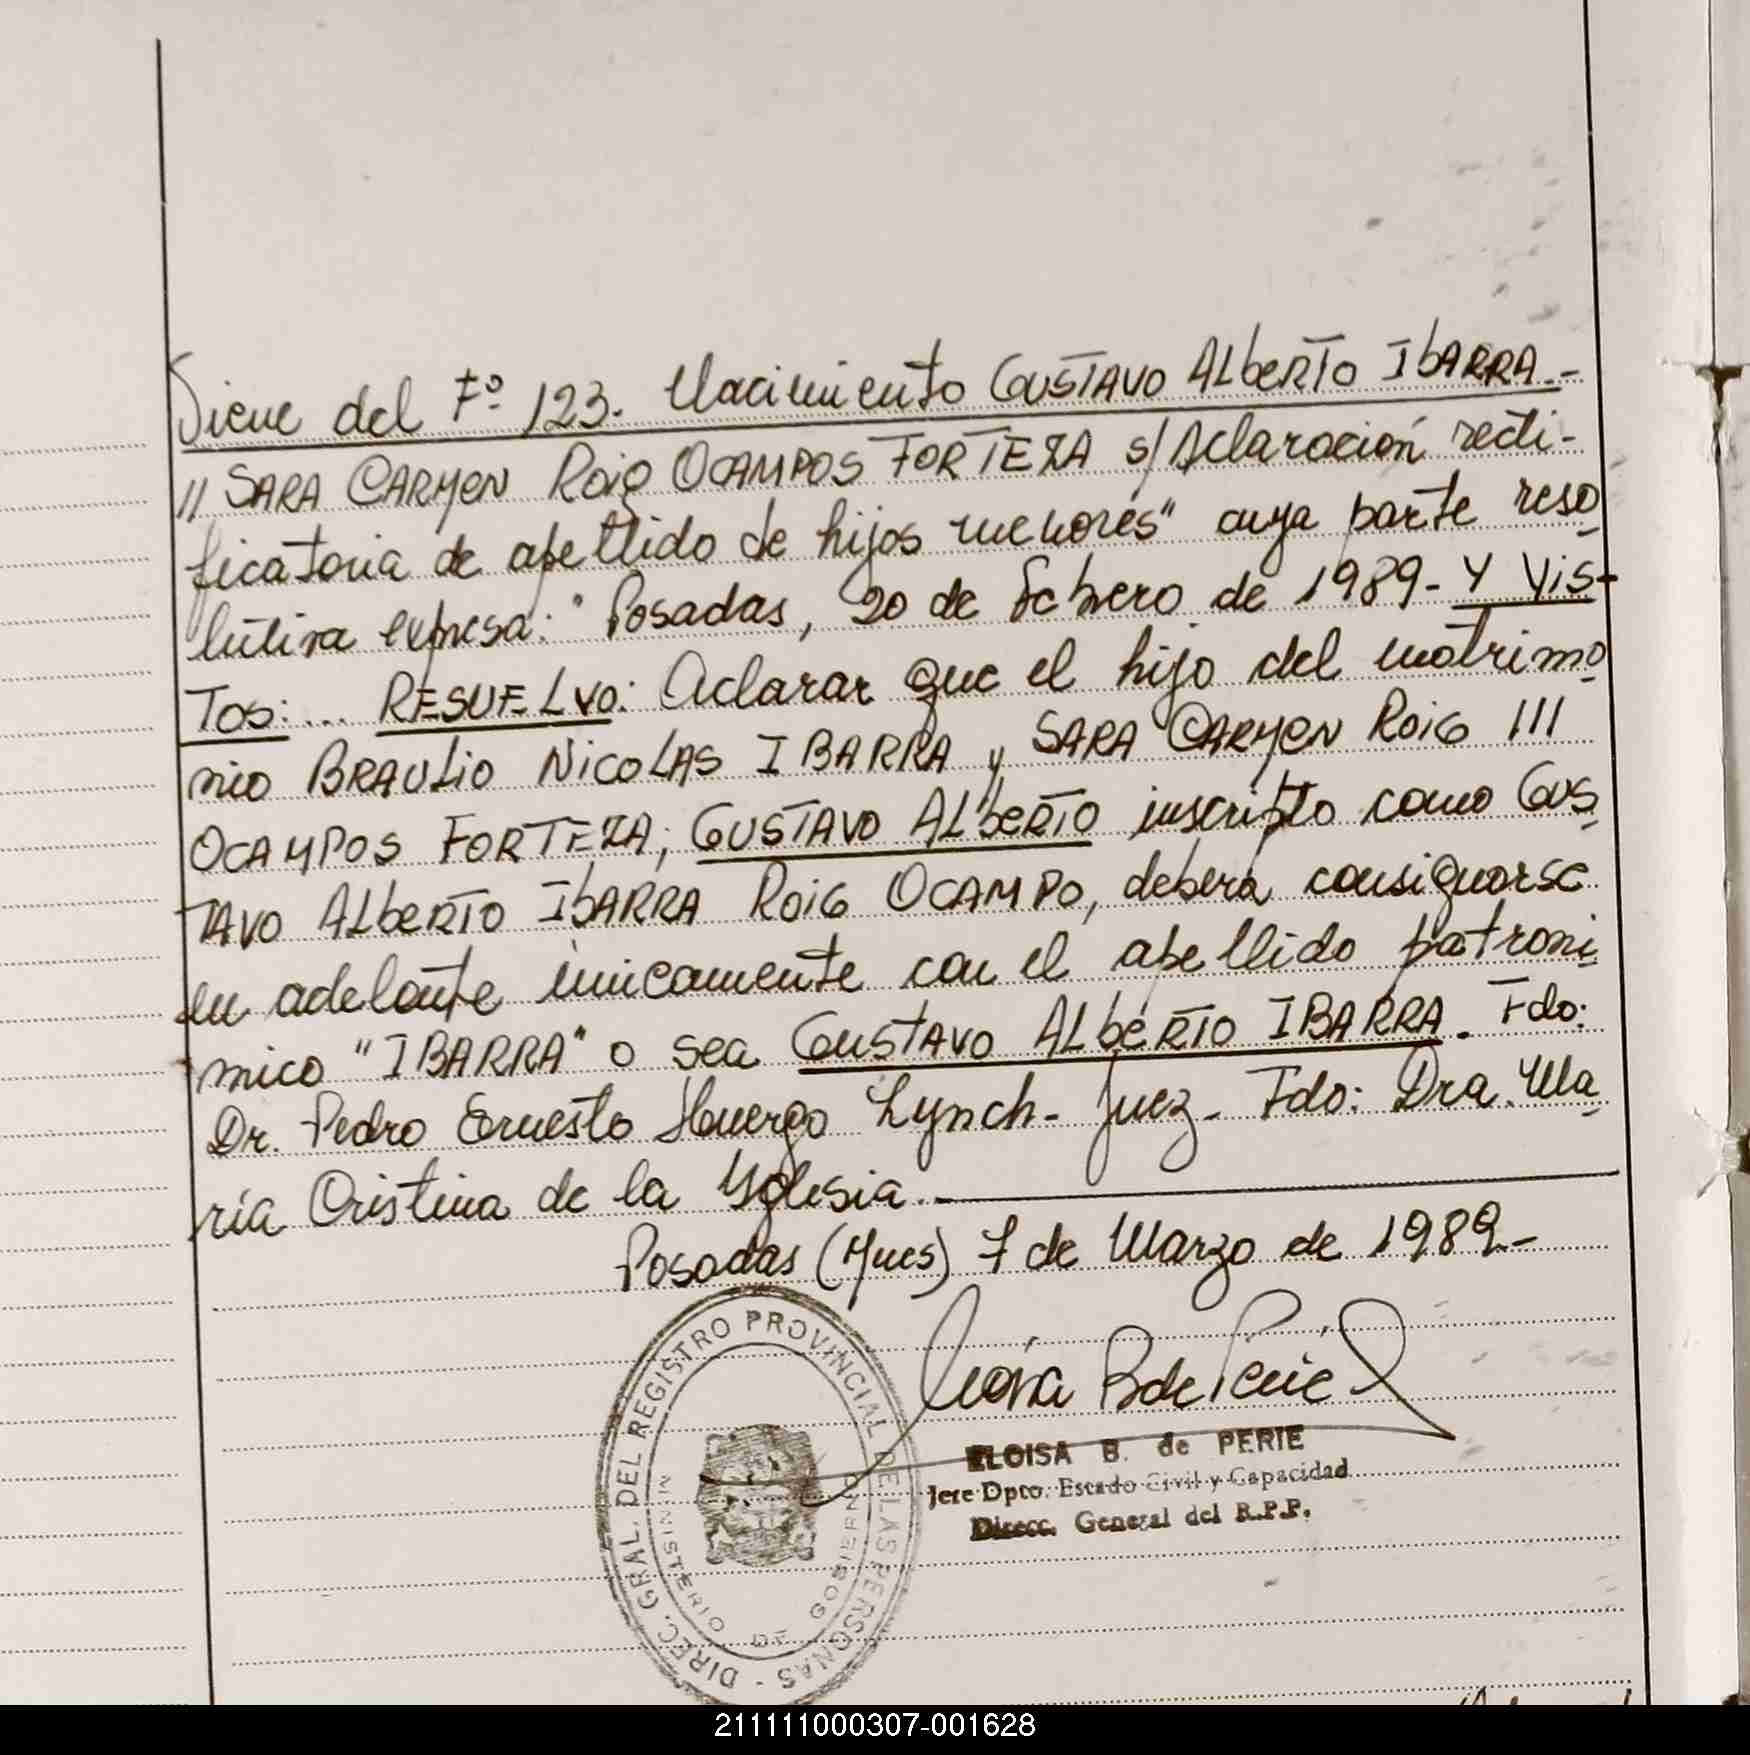 Viene del Fº 123. Nacimiento GUSTAVO ALbERTO IbARRA.-
// SARA CARMEN ROIG OCAMPOS FORTEZA s/ Aclaración recti-
ficatoria de apellido de hijos menores" cuya parte reso
lutiva expresa: "Posadas, 20 de Febrero de 1989- Y VIS-
TOS: ... RESUELVO: Aclarar que el hijo del matrimo
nio BRAULIO NICOLAS IBARRA y SARA CARMEN ROIG ///
OCAMPOS FORTEZA; GUSTAVO ALbERTO inscripto como GUS
TAVO ALbERTO IbARRA ROIG OCAMPO, deberá consignarse
en adelante únicamente con el apellido patroni
mico "IBARRA" o sea GUSTAVO ALbERTO IBARRA. Fdo:
Dr. Pedro Ernesto Huergo Lynch- Juez- Fdo: Dra. Ma
ría Cristina de la Yglesia.
Posadas (Mnes) 7 de Marzo de 1989.-
DIREC. GRAL. DEL REGISTRO PROVINCIAL DE LAS PERSONAS -
MINISTERIO DE GOBIERNO
ELOISA B. de PERIE
Jefe Dpto. Estado Civil y Capacidad
Direcc. General del R.P.P.
211111000307-001628